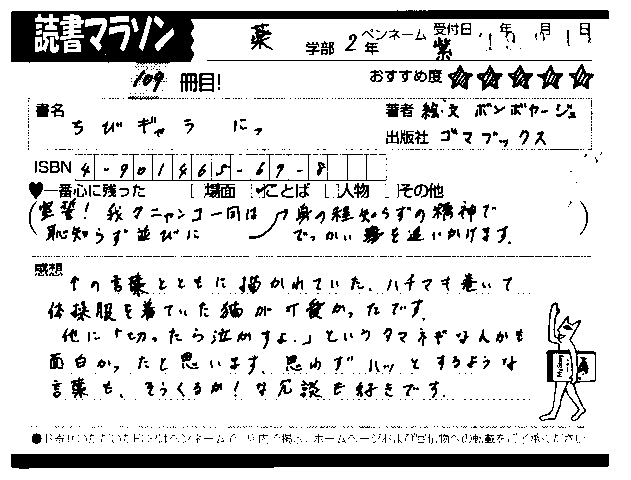 読書マラソン
薬 学部 2年 ペンネーム 紫 受付日 年 月 日
109 冊目! おすすめ度 ★★★★★
書名 ちびギャラ にっ
著者 絵・文 ボンボヤージュ
出版社 ゴマブックス
ISBN 4-901465-67-8
♥一番心に残った [ 場面 ✓ことば [ ]人物 [ ]その他
(宣誓! 我々ニャンコ一同は 身の程知らずの精神で
恥知らず並びに でっかい夢を追いかけます。)
感想
↑の言葉とともに描かれていた、ハチマキ巻いて
体操服を着ていた猫が可愛かったです。
他に「切ったら泣かすよ。」というタマネギなんかも
面白かったと思います。思わずハッとするような
言葉も、そうくるか!な冗談も好きです。